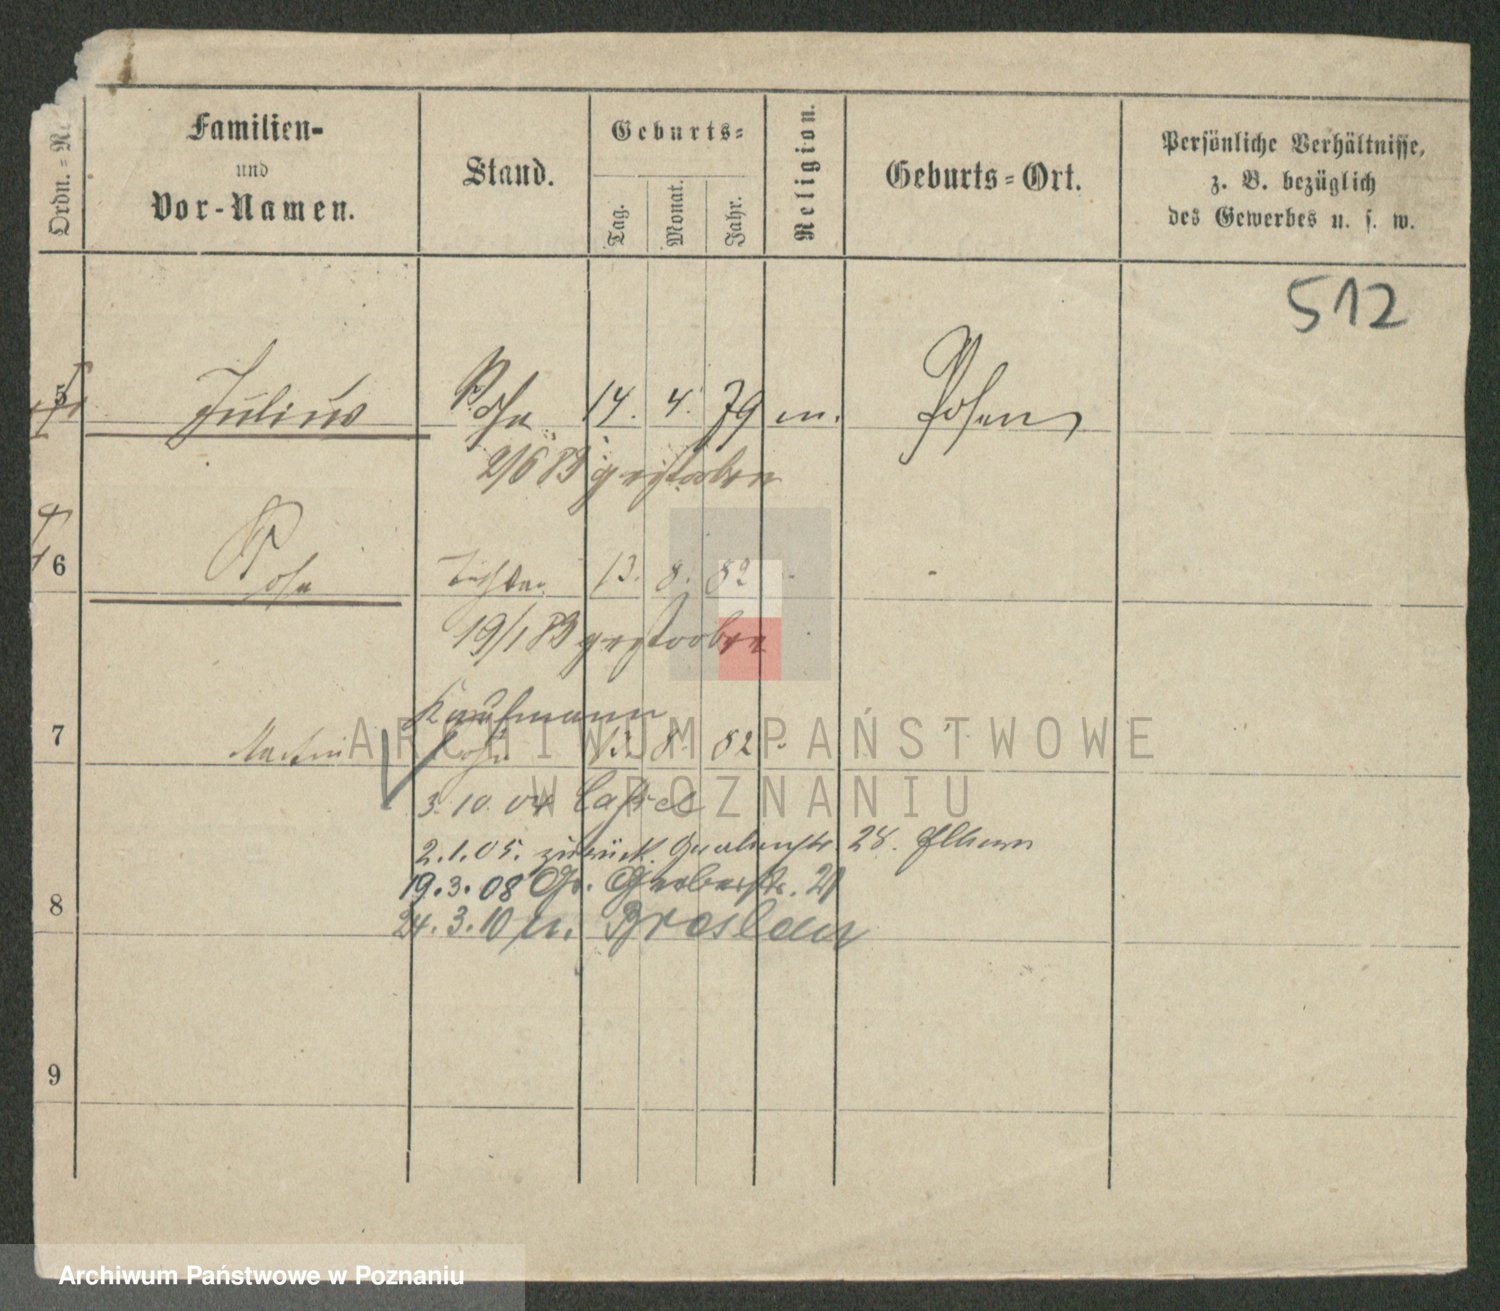 Ordn.=Nr
Familien-
und
Vor-Namen.
Stand.
Geburts=
Tag.
Monat.
Jahr.
Religion.
Geburts=Ort.
Persönliche Verhältnisse,
z. B. bezüglich
des Gewerbes u. s. w.
512
5 Julius Sohn 14. 4. 79 m. Posen
2/6 83 gestorben
6 Tochter 13. 8. 82 -
19/1 83 gestorben
Kaufmann
7 Martin Sohn 13. 8. 82 -
3. 10. 04 Cassel
2. 1. 05. zurück. 28.
19. 3. 08 Gr. Gerberstr. 21
8 24. 3. 10 n. Breslau
9
ARCHIWUM PAŃSTWOWE
W POZNANIU
Archiwum Państwowe w Poznaniu